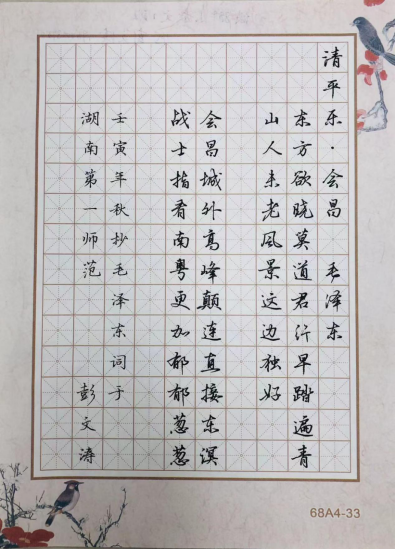 清平乐·会昌 毛泽东
东方欲晓莫道君行早踏遍青
山人未老风景这边独好
会昌城外高峰颠连直接东溟
战士指看南粤更加郁郁葱葱
壬寅年秋抄毛泽东词于
湖南第一师范 彭文涛
68A4-33